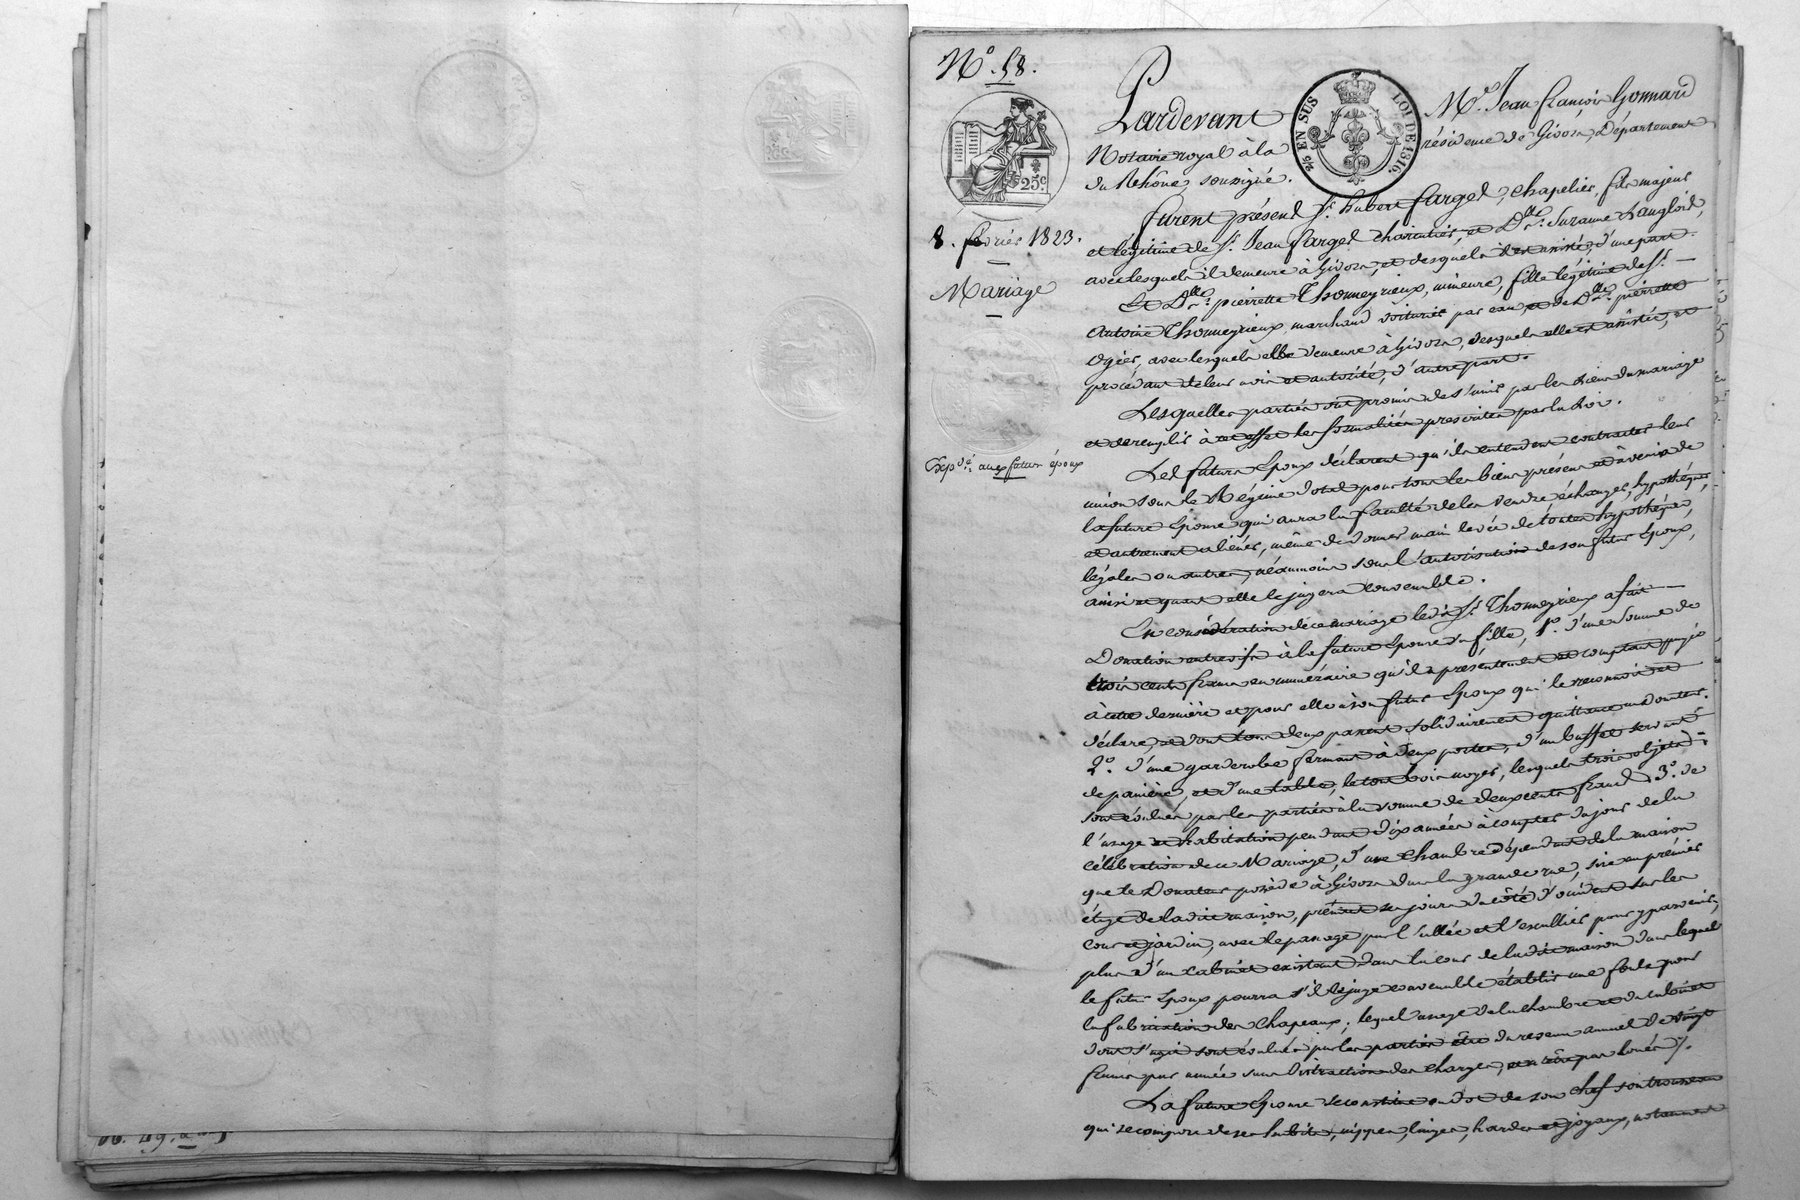 N.º 58.
25c.
2/10 EN SUS LOI DE 1816.
8. février 1823.
Mariage
Exp.dié aux futurs époux
Pardevant M.e Jean françois Gonnard
Notaire royal à la résidence de Givors, Département
du Rhône, soussigné.
furent présens S.r hubert farges, chapelier, fils majeur
et légitime de S.r Jean farges charcutier, et D.lle Suzanne Langlois,
avec lesquels il demeure à Givors, et desquels il est assisté, d'une part.
Et D.lle pierrette Thonneyrieux, mineure, fille légitime de S.r
Antoine Thonneyrieux, marchand voiturier par eau, et de D.lle pierrette
ogier, avec lesquels elle demeure à Givors, desquels elle est assistée, et
procédant de leur avis et autorité, d'autre part.
Lesquelles parties ont promis de s'unir par les liens du mariage
et de remplir à cet effet les formalités prescrites par la Loi.
Les futurs Epoux déclarent qu'ils entendent contracter leur
union sous le Régime dotal pour tous les biens présens et à venir de
la future Epouse qui aura la faculté de les vendre, échanger, hypothéquer,
et autrement aliéner, même de donner main levée de toutes hypothèques,
légales ou autres, néanmoins sous l'autorisation de son futur Epoux,
ainsi et quant elle le jugera convenable.
En considération de ce mariage ledit S.r Thonneyrieux a fait
Donation entrevifs à la future Epouse sa fille, 1.º d'une somme de
trois cents francs en numéraire qu'il a présentement et comptant payé
à cette dernière et pour elle à son futur Epoux qui le reconnoit et
déclare, et dont tous deux passent solidairement quittance au donateur.
2.º d'une garderobe fermant à deux portes, d'un buffet servant
de panière, et d'une table, le tout bois noyer, lesquels trois objets
sont évalués par les parties à la somme de deux cents francs. 3.º de
l'usage et habitation pendant dix années à compter du jour de la
célébration de ce Mariage, d'une chambre dépendant de la maison
que le Donateur possède à Givors dans la grande rue, sise au premier
étage de ladite maison, prenant ses jours du côté d'occident sur les
cour et jardin, avec le passage par l'allée et l'escallier pour y parvenir;
plus d'un cabinet existant dans la cour de ladite maison dans lequel
le futur Epoux pourra s'il le juge convenable établir une foule pour
la fabrication des chapeaux; lequel usage de la chambre et du cabinet
dont s'agit sont évalués par les parties être du revenu annuel de vingt
francs par année sans distraction des charges,
La future Epouse se constitue en dot de son chef son trousseau
qui se compose de ses habits, nippes, linges, hardes et joyaux, notamment